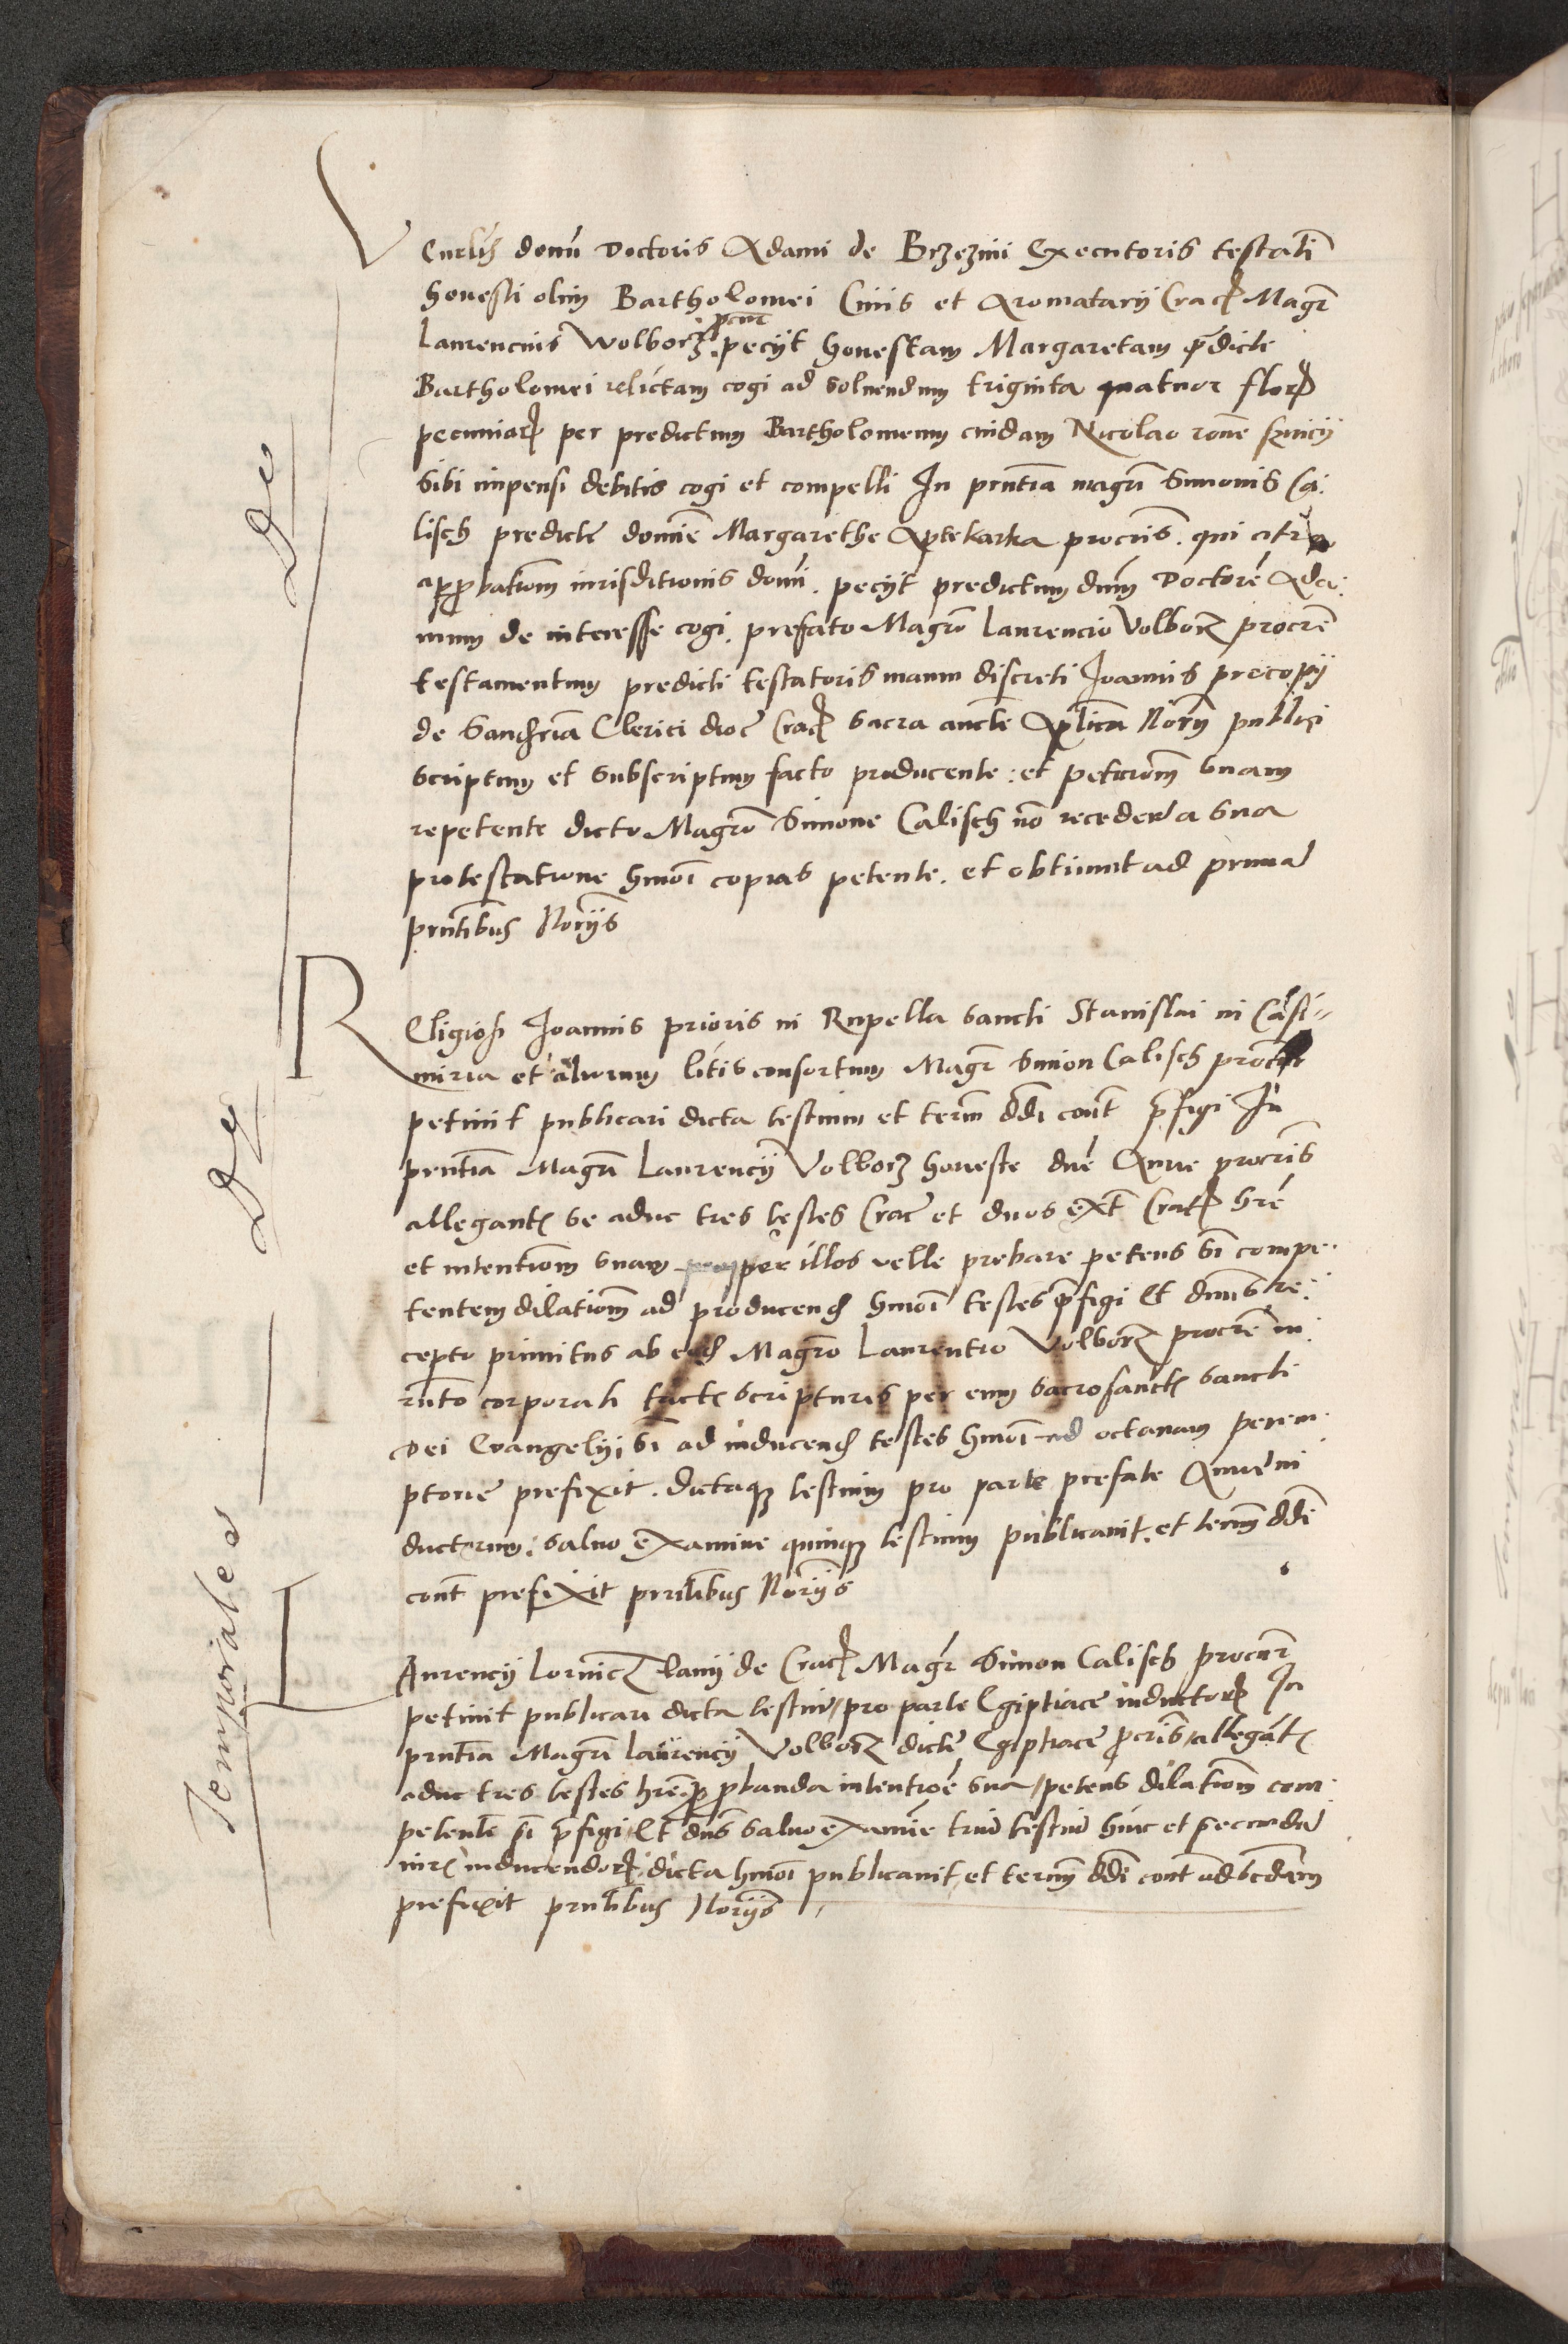 VEnerlis domini Doctoris Adami de Brzezini Executoris testati
honesti olim Bartholomei Civis et Aromatarii Crac Magr
Laurencius Wolborz procur peciit honestam Margaretam predicti
Bartholomei relictam cogi ad solvendum triginta quatuor flor
pecuniar per predictum Bartholomeum cuidam Nicolao rone
sibi impensi debitis cogi et compelli In pntia magri Simonis Ca:
lisch predicte domine Margarethe Aptekarka procris. qui citra
approbationm iurisditionis domi. peciit predictum dum Doctore Ada:
mum de interesse cogi. prefato Magro Laurencio Volborz procre
testamentum predicti testatoris manu discreti Joannis precopii
de Clerici dioc Crac sacra aucte Aplica Norm publici
scriptum et subscriptum facto producente: et peticionm suam
repetente dicto Magro Simone Calisch no recedendo a sua
protestatione hmoi copias petente. et obtinuit ad prima
pntibus Noriis
REligiosi Joannis prioris in Rupella sancti Stanislai in Casi-
miria et aliorum litis consortum Magr Simon Calisch procur
petivit publicari dicta testium et term ddi cont prefigi In
pntia Magri Laurencii Volborz honeste dne Anne procris
allegantis se aduc tres testes Crac et duos ext Crac hre
et intentionm suam per illos velle probare petens si compe:
tentem dilationm ad producend hmoi testes prefigi Et dnus re:
cepto primitus ab eod Magro Laurentio Volborz procre iu:
rnto corporali tactis scripturis per eum sacrosanctis sancti
Dei Evangelii, si ad inducend testes hmoi ad octavam perem:
ptorie prefixit. dictaque testium pro parte prefate Anne in
ductorum, salvo examine quinque testium publicavit. et term ddi
cont prefixit pntibus Noriis
LAurencii lanii de Crac Magr Simon Calisch procur
petivit publicari dicta testiu pro parte Egiptiace inductor In
pntia Magri Laurencii Volborz dicte Egiptiace procris allegantis
aduc tres testes hre pro probanda intentioe sua petens dilationm com:
petente si prefigi Et dns salvo examine triu testiu hinc et secundu
iuris inducendor dicta hmoi publicavit et term ddi cont ad
prefixit pntibus Noriis
Temporales